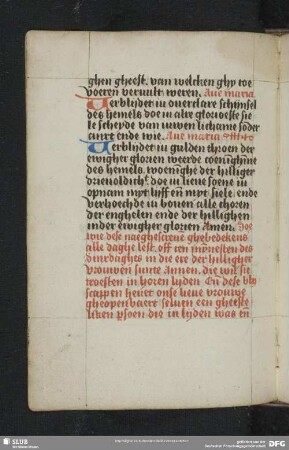 ghen gheest. van welcken ghy toe
voeren vervult weren. Aue maria
Verblijdet in ouerclare schijnsel
des hemels doe in alre glorioeste sie
le scheyde van uwen lichame sōder
anxt ende wie. Aue maria
Verblijdet in gulden throen der
ewigher glorien weerde coenīghīne
des hemels. woenīghe der hilliger
drieuoldicht. doe iv lieue soene iv
opnam myt lijff eñ myt siele. ende
verhoechde iv bouen alle choren
der enghelen ende der hillighen
inder ewigher glorien Amen. Soe
wie dese naeghescreue ghebedekens
alle daghe lest. off ten mȳnesten des
dinxdaghes in die eer der hilligher
vrouwen suncte Annen. die wil sie
troesten in horen lyden. Eñ dese bly
scappen heuet onse lieue vrouwe
gheopenbaert seluen een gheeste
licken psoen die in lyden was eñ
SLUB
DFG